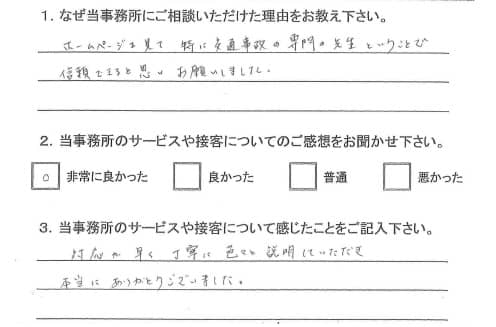 1. なぜ当事務所にご相談いただけた理由をお教え下さい。
ホームページを見て 特に交通事故の専門の先生ということで
信頼できると思い お願いしました。
2. 当事務所のサービスや接客についてのご感想をお聞かせ下さい。
○ 非常に良かった 良かった 普通 悪かった
3. 当事務所のサービスや接客について感じたことをご記入下さい。
対応が早く丁寧に色々と説明していただき
本当にありがとうございました。